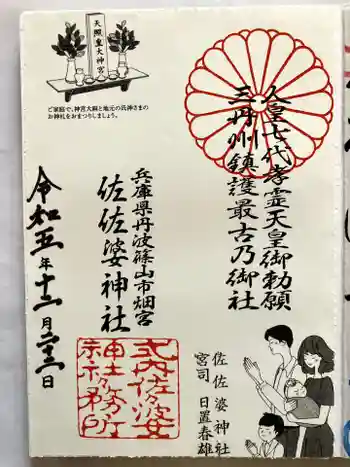 人皇七代孝霊天皇御勅願
三丹州鎮護最古乃御社
天照皇大神宮
ご家庭で、神宮大麻と地元の氏神さまの
お神札をおまつりしましょう。
兵庫県丹波篠山市畑宮
佐佐婆神社
令和五年十二月二十三日
式内佐佐婆
神社社務所
佐佐婆神社
宮司 日置春雄